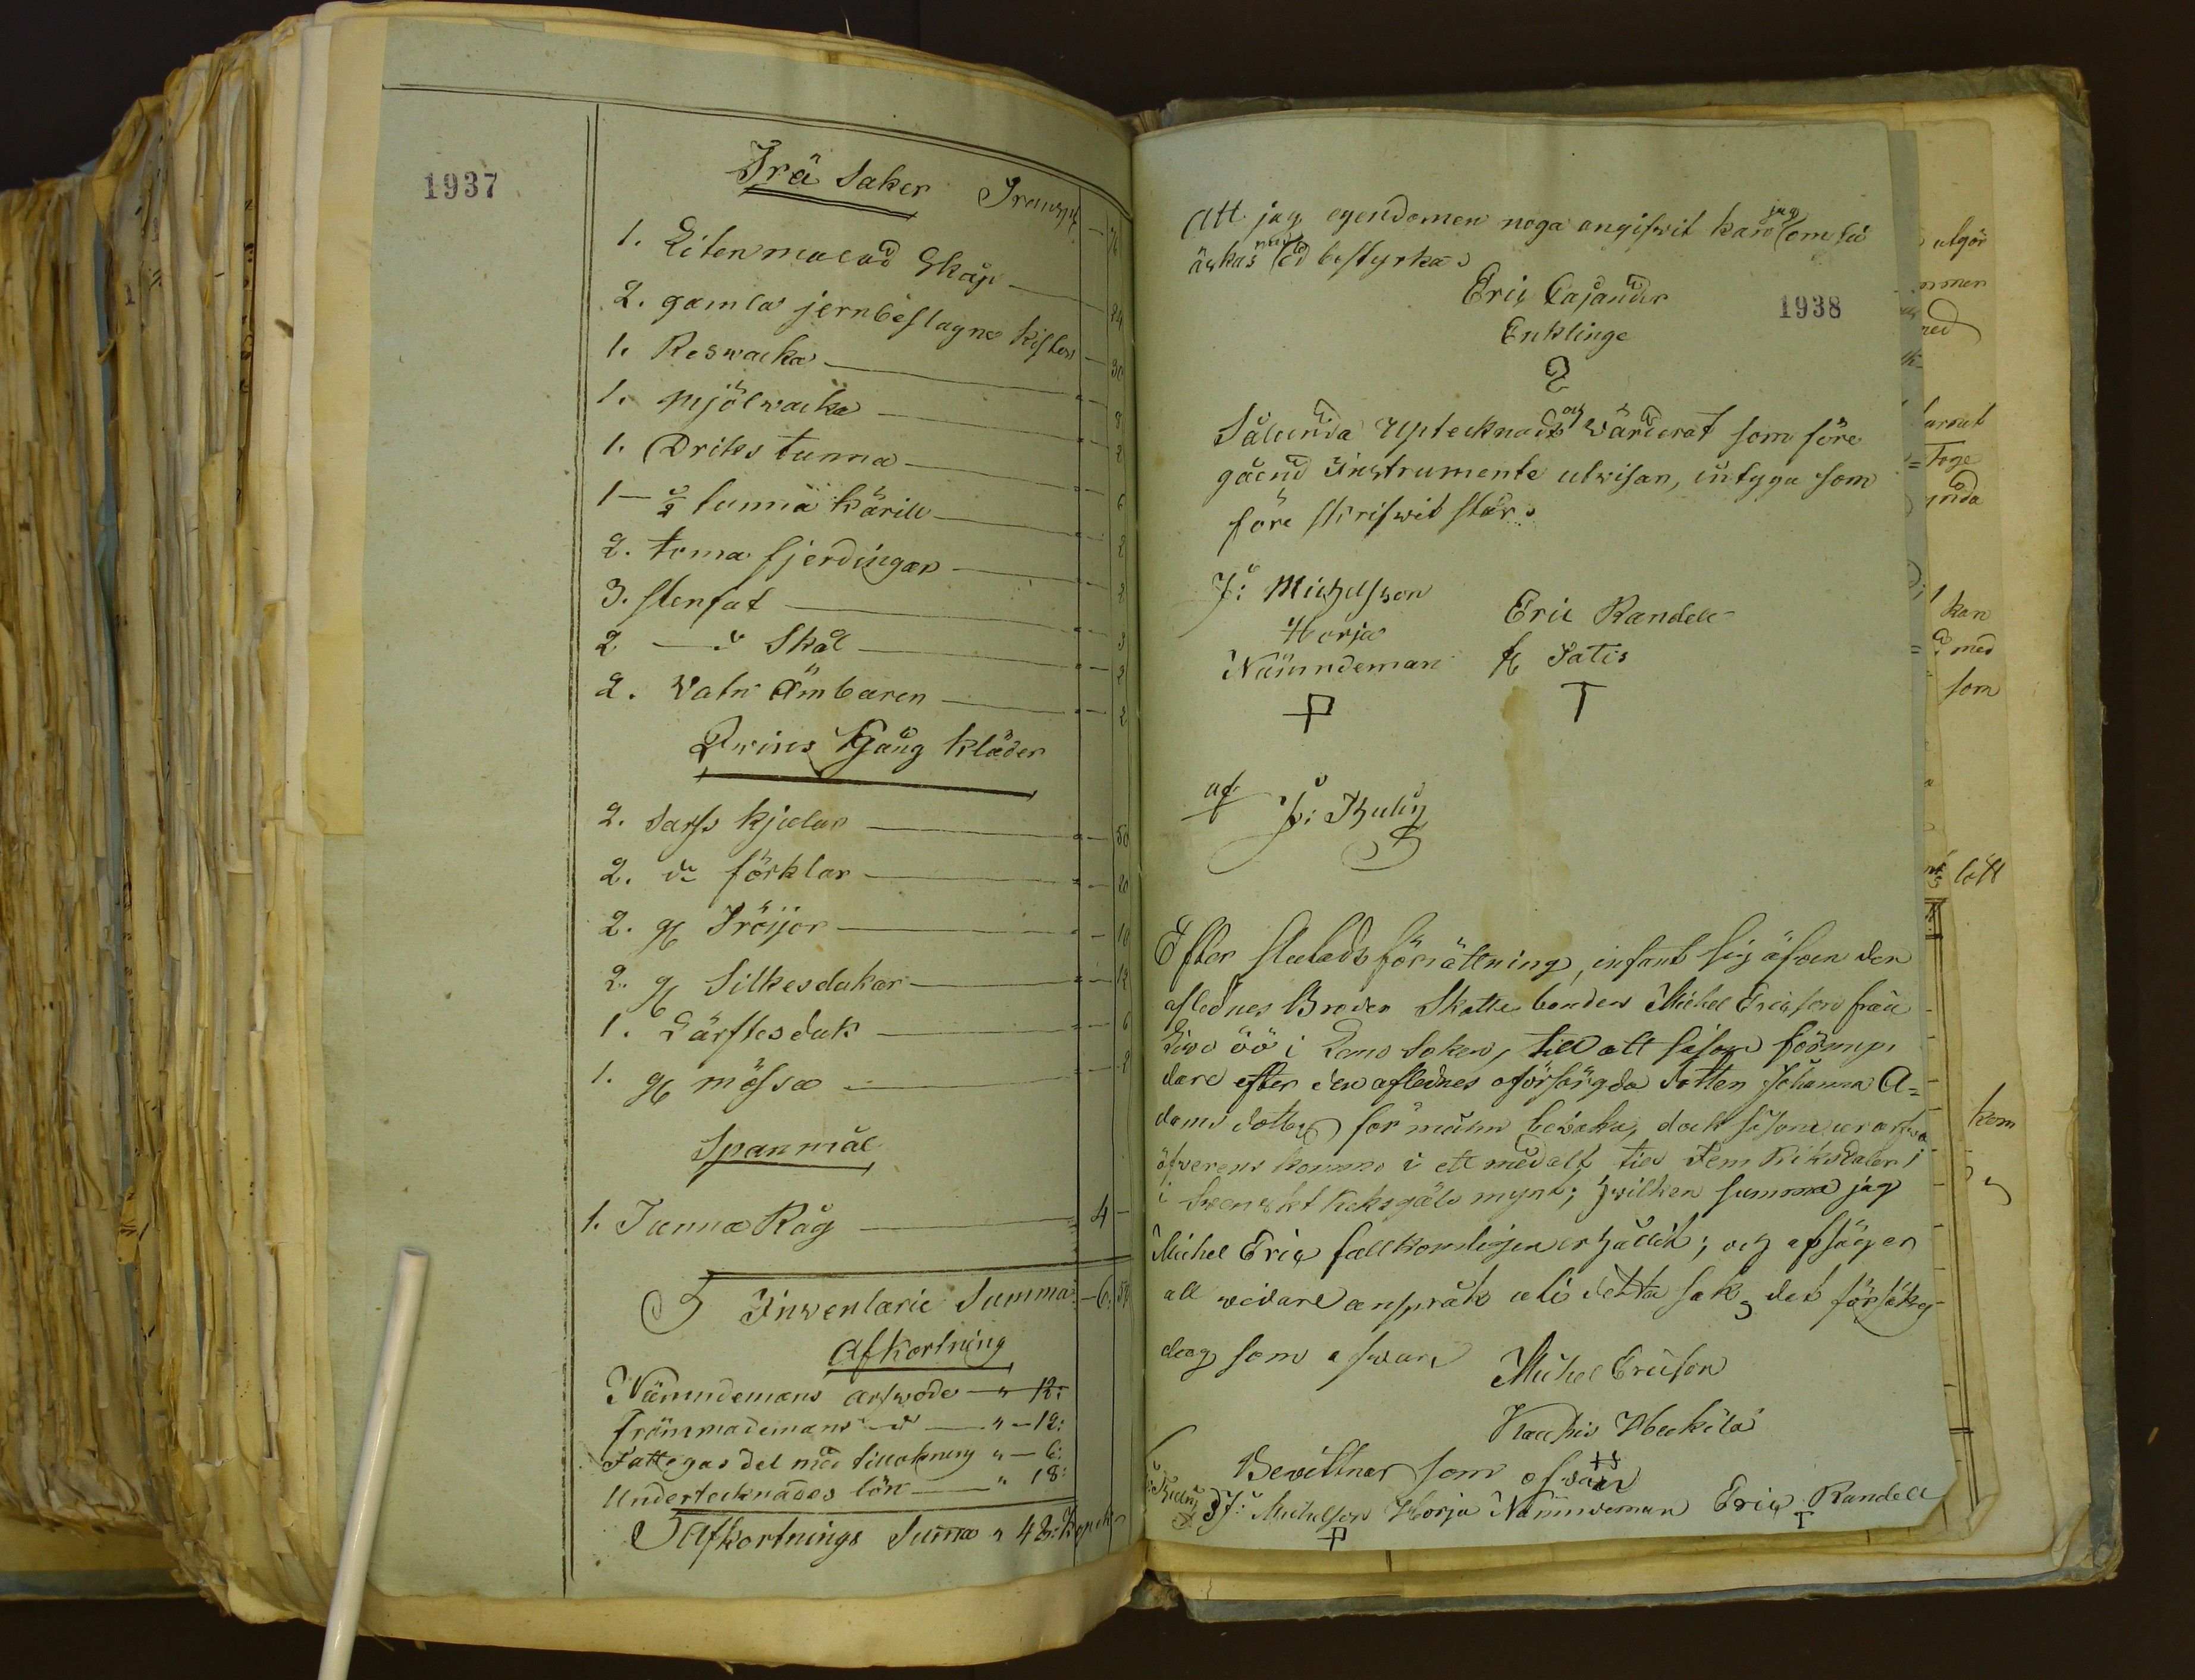 1937
Trä Saker Transp — 76
1. Liten malad Skåp — 24
2. gamla jernbeslagne kistor — 30
1. Reswacka — 8
1. Mjölwacka — 2
1. Driks tunna — 6
1 — ½ tunna kärill — 2
2. toma fjerdingar — 2
3. stenfat — 3
2 — d:o Skål — 2
2. Vatn Ämbaren — 2
Qwins Gång kläder
2. Sarfs kjolar — 50
2. d:o förklar — 20
2. gl Tröijor — 10
2. gl Silkesdukar — 12
1. Lärftesduk — 6
1. gl mössa — 2
Spanmål
1. Tunna Råg — 4 —
Inwentarie Summa — 6:
Afkortning
Nämndemans arfwode — " 12:
främmademans d:o — " — 12:
Fattigas del med tillökning " — 6:
Undertecknades lön — " 18:
Afkortnings Summa " 48: Kopek
Att jag egendomen noga angifwit kan jag om så
äskas med Ed bestyrka
Eric Cajander
1938
Enklinge
Sålunda Uptecknadt och Värderat som före
gåend Instrumente utwisar, intyga som
före skrifwit står.
J: Michelsson
Eric Randell
Horja
Nämndeman
fr Satis
af
Efter slutad förrättning, infant sig äfwen den
aflednes Broder Skatte bonden Michel Ericsson från
öö i Lemo Soken, till att såsom förmyn
dare efter den aflednes oförsörgda dotter Johanna A=
dams dotter förmåhn bewaka, dock såsom
öfverens komne i ett med alt till Fem Riksdaler
i Swenskt Riksgäld mynt; hwilken summa jag
Michel Eric fullkomligen erhållit; och afsäger
all widare anspråk uti detta sak, det försäkras
dag som ofwan
Michel Ericsson
Heikilä
Bewittnar som ofwan
J: Michelsson Horja Nämndeman Eric Randell
utgör
med
Toge
kan
med
som
kom